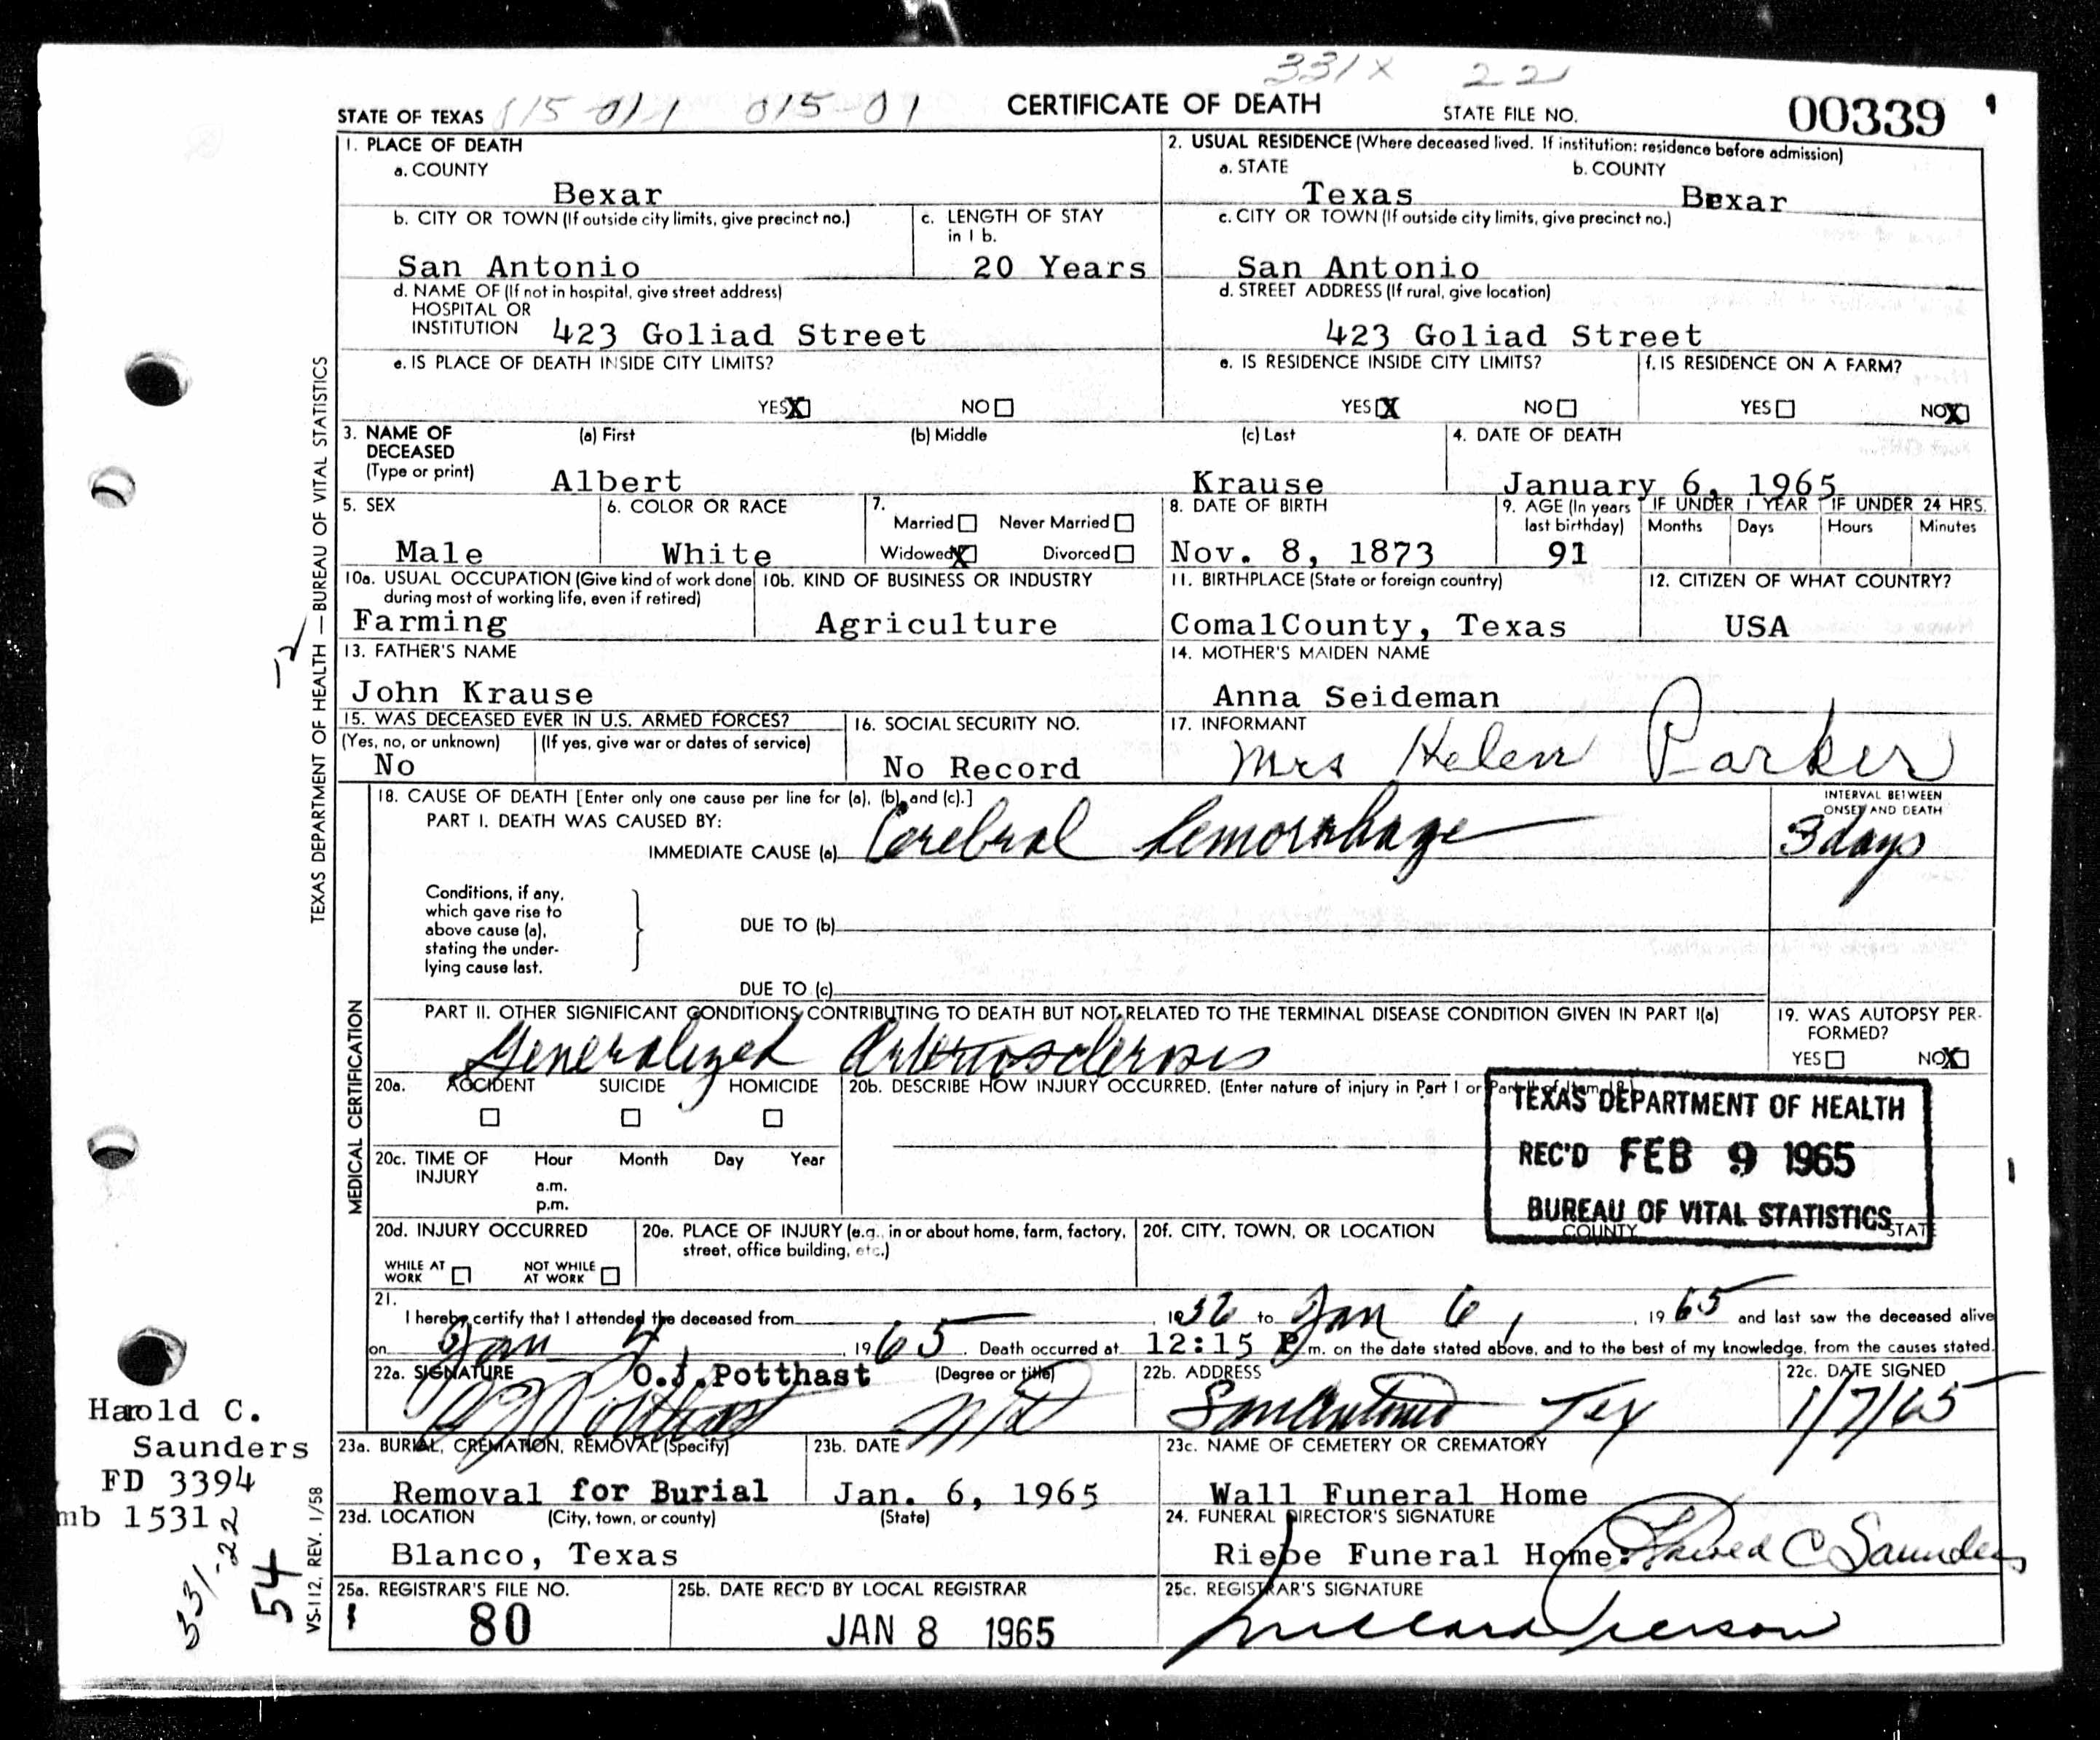 331X 22
STATE OF TEXAS 015-011 015-01 CERTIFICATE OF DEATH STATE FILE NO. 00339
1. PLACE OF DEATH
a. COUNTY
Bexar
2. USUAL RESIDENCE (Where deceased lived. If institution: residence before admission)
a. STATE b. COUNTY
Texas Bexar
b. CITY OR TOWN (If outside city limits, give precinct no.)
San Antonio
c. LENGTH OF STAY
in 1 b.
20 Years
c. CITY OR TOWN (If outside city limits, give precinct no.)
San Antonio
d. NAME OF (If not in hospital, give street address)
HOSPITAL OR
INSTITUTION 423 Goliad Street
d. STREET ADDRESS (If rural, give location)
423 Goliad Street
e. IS PLACE OF DEATH INSIDE CITY LIMITS?
YES X NO
e. IS RESIDENCE INSIDE CITY LIMITS?
YES X NO
f. IS RESIDENCE ON A FARM?
YES NO X
3. NAME OF
DECEASED
(Type or print)
(a) First (b) Middle (c) Last
Albert Krause
4. DATE OF DEATH
January 6, 1965
5. SEX
Male
6. COLOR OR RACE
White
7.
Married Never Married
Widowed X Divorced
8. DATE OF BIRTH
Nov. 8, 1873
9. AGE (In years
last birthday)
91
IF UNDER 1 YEAR
Months Days
IF UNDER 24 HRS.
Hours Minutes
10a. USUAL OCCUPATION (Give kind of work done
during most of working life, even if retired)
Farming
10b. KIND OF BUSINESS OR INDUSTRY
Agriculture
11. BIRTHPLACE (State or foreign country)
ComalCounty, Texas
12. CITIZEN OF WHAT COUNTRY?
USA
13. FATHER'S NAME
John Krause
14. MOTHER'S MAIDEN NAME
Anna Seideman
15. WAS DECEASED EVER IN U.S. ARMED FORCES?
(Yes, no, or unknown) (If yes, give war or dates of service)
No
16. SOCIAL SECURITY NO.
No Record
17. INFORMANT
Mrs Helen Parker
18. CAUSE OF DEATH [Enter only one cause per line for (a), (b), and (c).]
PART I. DEATH WAS CAUSED BY:
IMMEDIATE CAUSE (a) Cerebral hemorrhage
INTERVAL BETWEEN
ONSET AND DEATH
3 days
Conditions, if any,
which gave rise to
above cause (a),
stating the under-
lying cause last.
DUE TO (b)
DUE TO (c)
PART II. OTHER SIGNIFICANT CONDITIONS CONTRIBUTING TO DEATH BUT NOT RELATED TO THE TERMINAL DISEASE CONDITION GIVEN IN PART I(a)
Generalized Arteriosclerosis
19. WAS AUTOPSY PER-
FORMED?
YES NO X
20a. ACCIDENT SUICIDE HOMICIDE
20b. DESCRIBE HOW INJURY OCCURRED. (Enter nature of injury in Part I or Part II of Item 18.)
TEXAS DEPARTMENT OF HEALTH
REC'D FEB 9 1965
BUREAU OF VITAL STATISTICS
20c. TIME OF
INJURY
Hour Month Day Year
a.m.
p.m.
20d. INJURY OCCURRED
WHILE AT
WORK
NOT WHILE
AT WORK
20e. PLACE OF INJURY (e.g., in or about home, farm, factory,
street, office building, etc.)
20f. CITY, TOWN, OR LOCATION COUNTY STATE
21.
I hereby certify that I attended the deceased from 1956 to Jan 6, 1965 and last saw the deceased alive
on Jan 4, 1965. Death occurred at 12:15 P.m. on the date stated above, and to the best of my knowledge, from the causes stated.
22a. SIGNATURE O.J.Potthast (Degree or title)
OJ Potthast MD
22b. ADDRESS
San Antonio Tex
22c. DATE SIGNED
1/7/65
23a. BURIAL, CREMATION, REMOVAL (Specify)
Removal for Burial
23b. DATE
Jan. 6, 1965
23c. NAME OF CEMETERY OR CREMATORY
Wall Funeral Home
23d. LOCATION (City, town, or county) (State)
Blanco, Texas
24. FUNERAL DIRECTOR'S SIGNATURE
Riebe Funeral Home: Harold C Saunders
25a. REGISTRAR'S FILE NO.
80
25b. DATE REC'D BY LOCAL REGISTRAR
JAN 8 1965
25c. REGISTRAR'S SIGNATURE
TEXAS DEPARTMENT OF HEALTH — BUREAU OF VITAL STATISTICS
MEDICAL CERTIFICATION
VS-112, REV. 1/58
Harold C.
Saunders
FD 3394
mb 1531
331-22
54